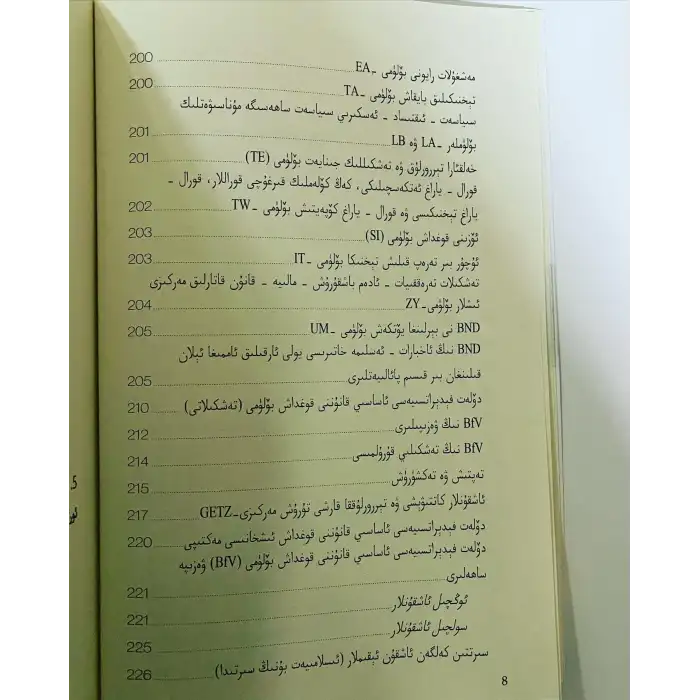 مەشغۇلات رايونى بۆلۈمى ـ EA ... 200
تېخنىكىلىق بايقاش بۆلۈمى ـ TA ... 200
سىياسەت ـ ئىقتىساد ـ ئەسكىرىي سىياسەت ساھەسىگە مۇناسىۋەتلىك
بۆلۈملەر ـ LA ۋە LB ... 201
خەلقئارا تېررورلۇق ۋە تەشكىللىك جىنايەت بۆلۈمى (TE) ... 201
قورال ـ ياراغ ئەتكەسچىلىكى، كەڭ كۆلەملىك قىرغۇچى قوراللار، قورال ـ
ياراغ تېخنىكىسى ۋە قورال ـ ياراغ كۆپەيتىش بۆلۈمى ـ TW ... 202
ئۆزىنى قوغداش بۆلۈمى (SI) ... 203
ئۇچۇر بىر تەرەپ قىلىش تېخنىكا بۆلۈمى ـ IT ... 203
تەشكىلات تەرەققىيات ـ ئادەم باشقۇرۇش ـ مالىيە ـ قانۇن قاتارلىق مەركىزى
ئىشلار بۆلۈمى ـ ZY ... 204
BND نى بېرلىنغا يۆتكەش بۆلۈمى ـ UM ... 205
BND نىڭ ئاخبارات ـ ئەسلىمە خاتىرىسى يولى ئارقىلىق ئاممىغا ئېلان
قىلىنغان بىر قىسىم پائالىيەتلىرى ... 205
دۆلەت فېدېراتسىيەسى ئاساسىي قانۇننى قوغداش بۆلۈمى (تەشكىلاتى) ... 210
BfV نىڭ ۋەزىپىلىرى ... 212
BfV نىڭ تەشكىلىي قۇرۇلمىسى ... 214
تەپتىش ۋە تەكشۈرۈش ... 215
ئاشقۇنلار كاتتىۋېشى ۋە تېررورلۇققا قارشى تۇرۇش مەركىزى ـ GETZ ... 217
دۆلەت فېدېراتسىيەسى ئاساسىي قانۇننى قوغداش ئىشخانىسى مەكتىپى ... 220
دۆلەت فېدېراتسىيەسى ئاساسىي قانۇننى قوغداش بۆلۈمى (BfV) ۋەزىپە
ساھەلىرى ... 221
ئوڭچىل ئاشقۇنلار ... 221
سولچىل ئاشقۇنلار ... 225
سىرتتىن كەلگەن ئاشقۇن ئېقىملار (ئىسلامىيەت بۇنىڭ سىرتىدا) ... 226
8